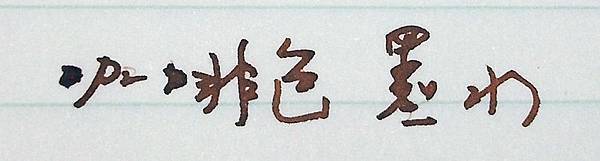 咖啡色墨水